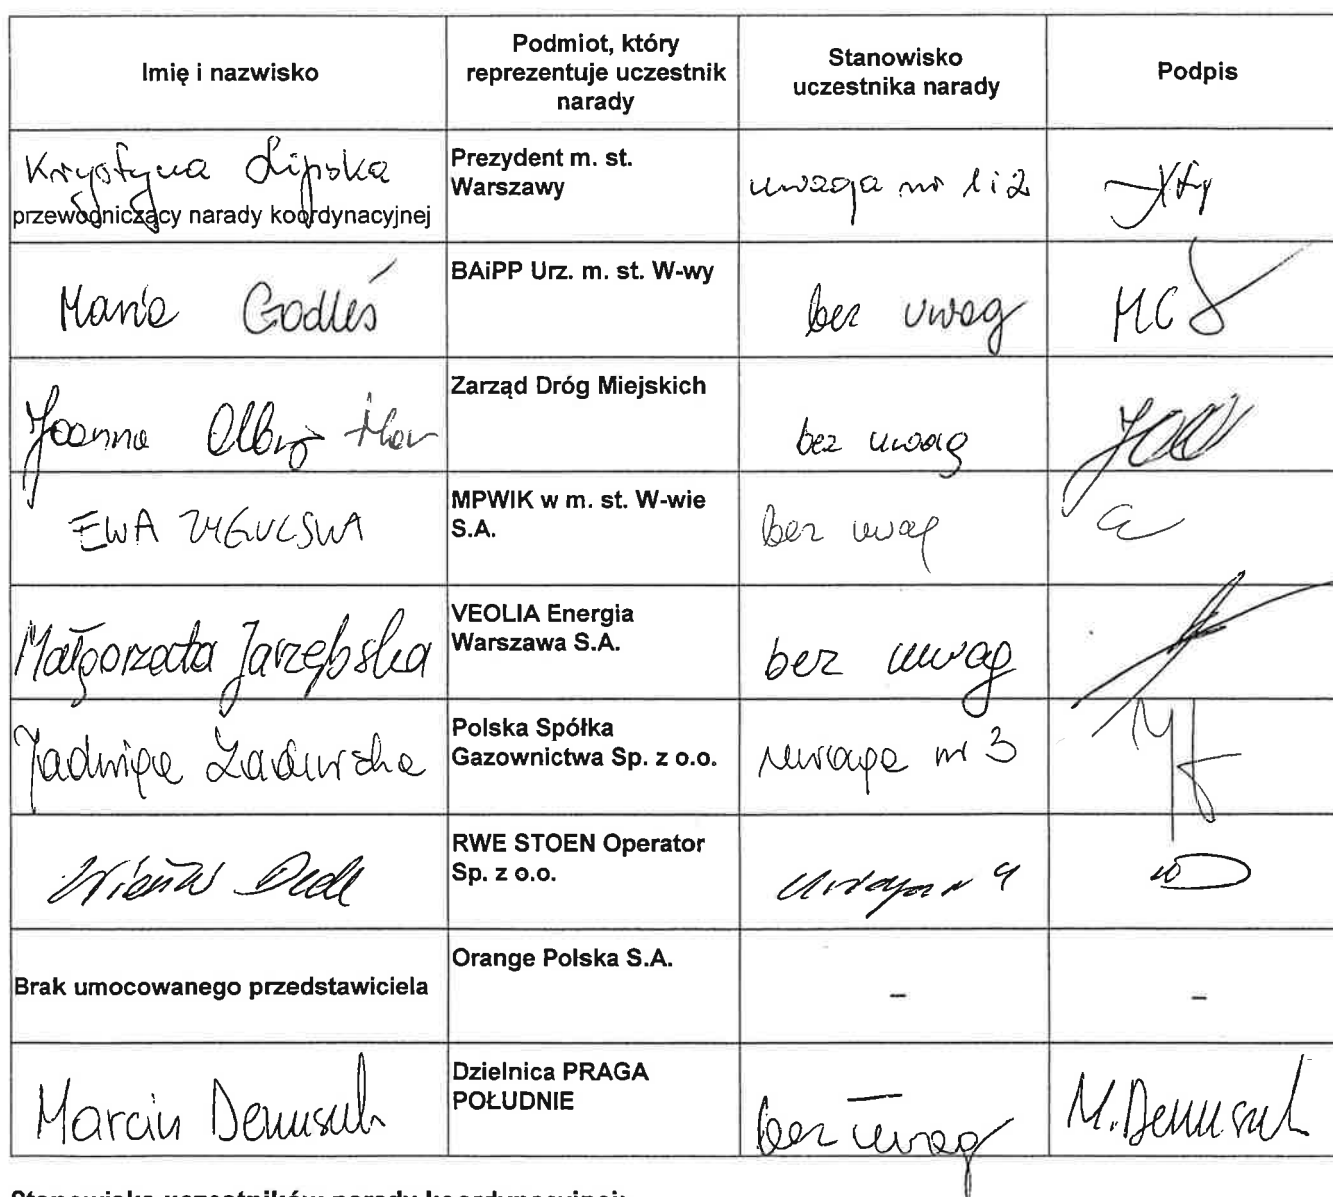 Imię i nazwisko
Podmiot, który
reprezentuje uczestnik
narady
Stanowisko
uczestnika narady
Podpis
Krystyna Lipska
przewodniczący narady koordynacyjnej
Prezydent m. st.
Warszawy
uwaga nr 1 i 2
Maria
BAiPP Urz. m. st. W-wy
bez uwag
Joanna
Zarząd Dróg Miejskich
bez uwag
EWA
MPWIK w m. st. W-wie
S.A.
bez uwag
Małgorzata Jarzębska
VEOLIA Energia
Warszawa S.A.
bez uwag
Jadwiga
Polska Spółka
Gazownictwa Sp. z o.o.
uwaga nr 3
RWE STOEN Operator
Sp. z o.o.
Brak umocowanego przedstawiciela
Orange Polska S.A.
-
-
Marcin
Dzielnica PRAGA
POŁUDNIE
bez uwag
M.